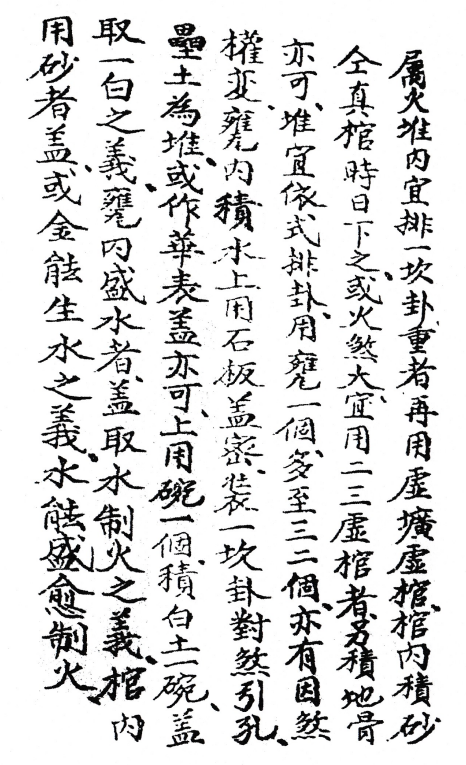 屬火堆內宜排一坎卦、重者再用虛壙虛棺、棺內積砂
仝真棺時日下之、或火煞大、宜用二三虛棺者、另積地骨
亦可、堆宜依式排卦、用甕一個、多至三二個、亦有因煞
權变、甕內積水上用石板盖密、裝一坎卦對煞引孔、
壘土為堆、或作華表盖亦可、上用碗一個、積白土一碗、盖
取一白之義、甕內盛水者、盖取水制火之義、棺內
用砂者盖、或金能生水之義、水能盛愈制火、